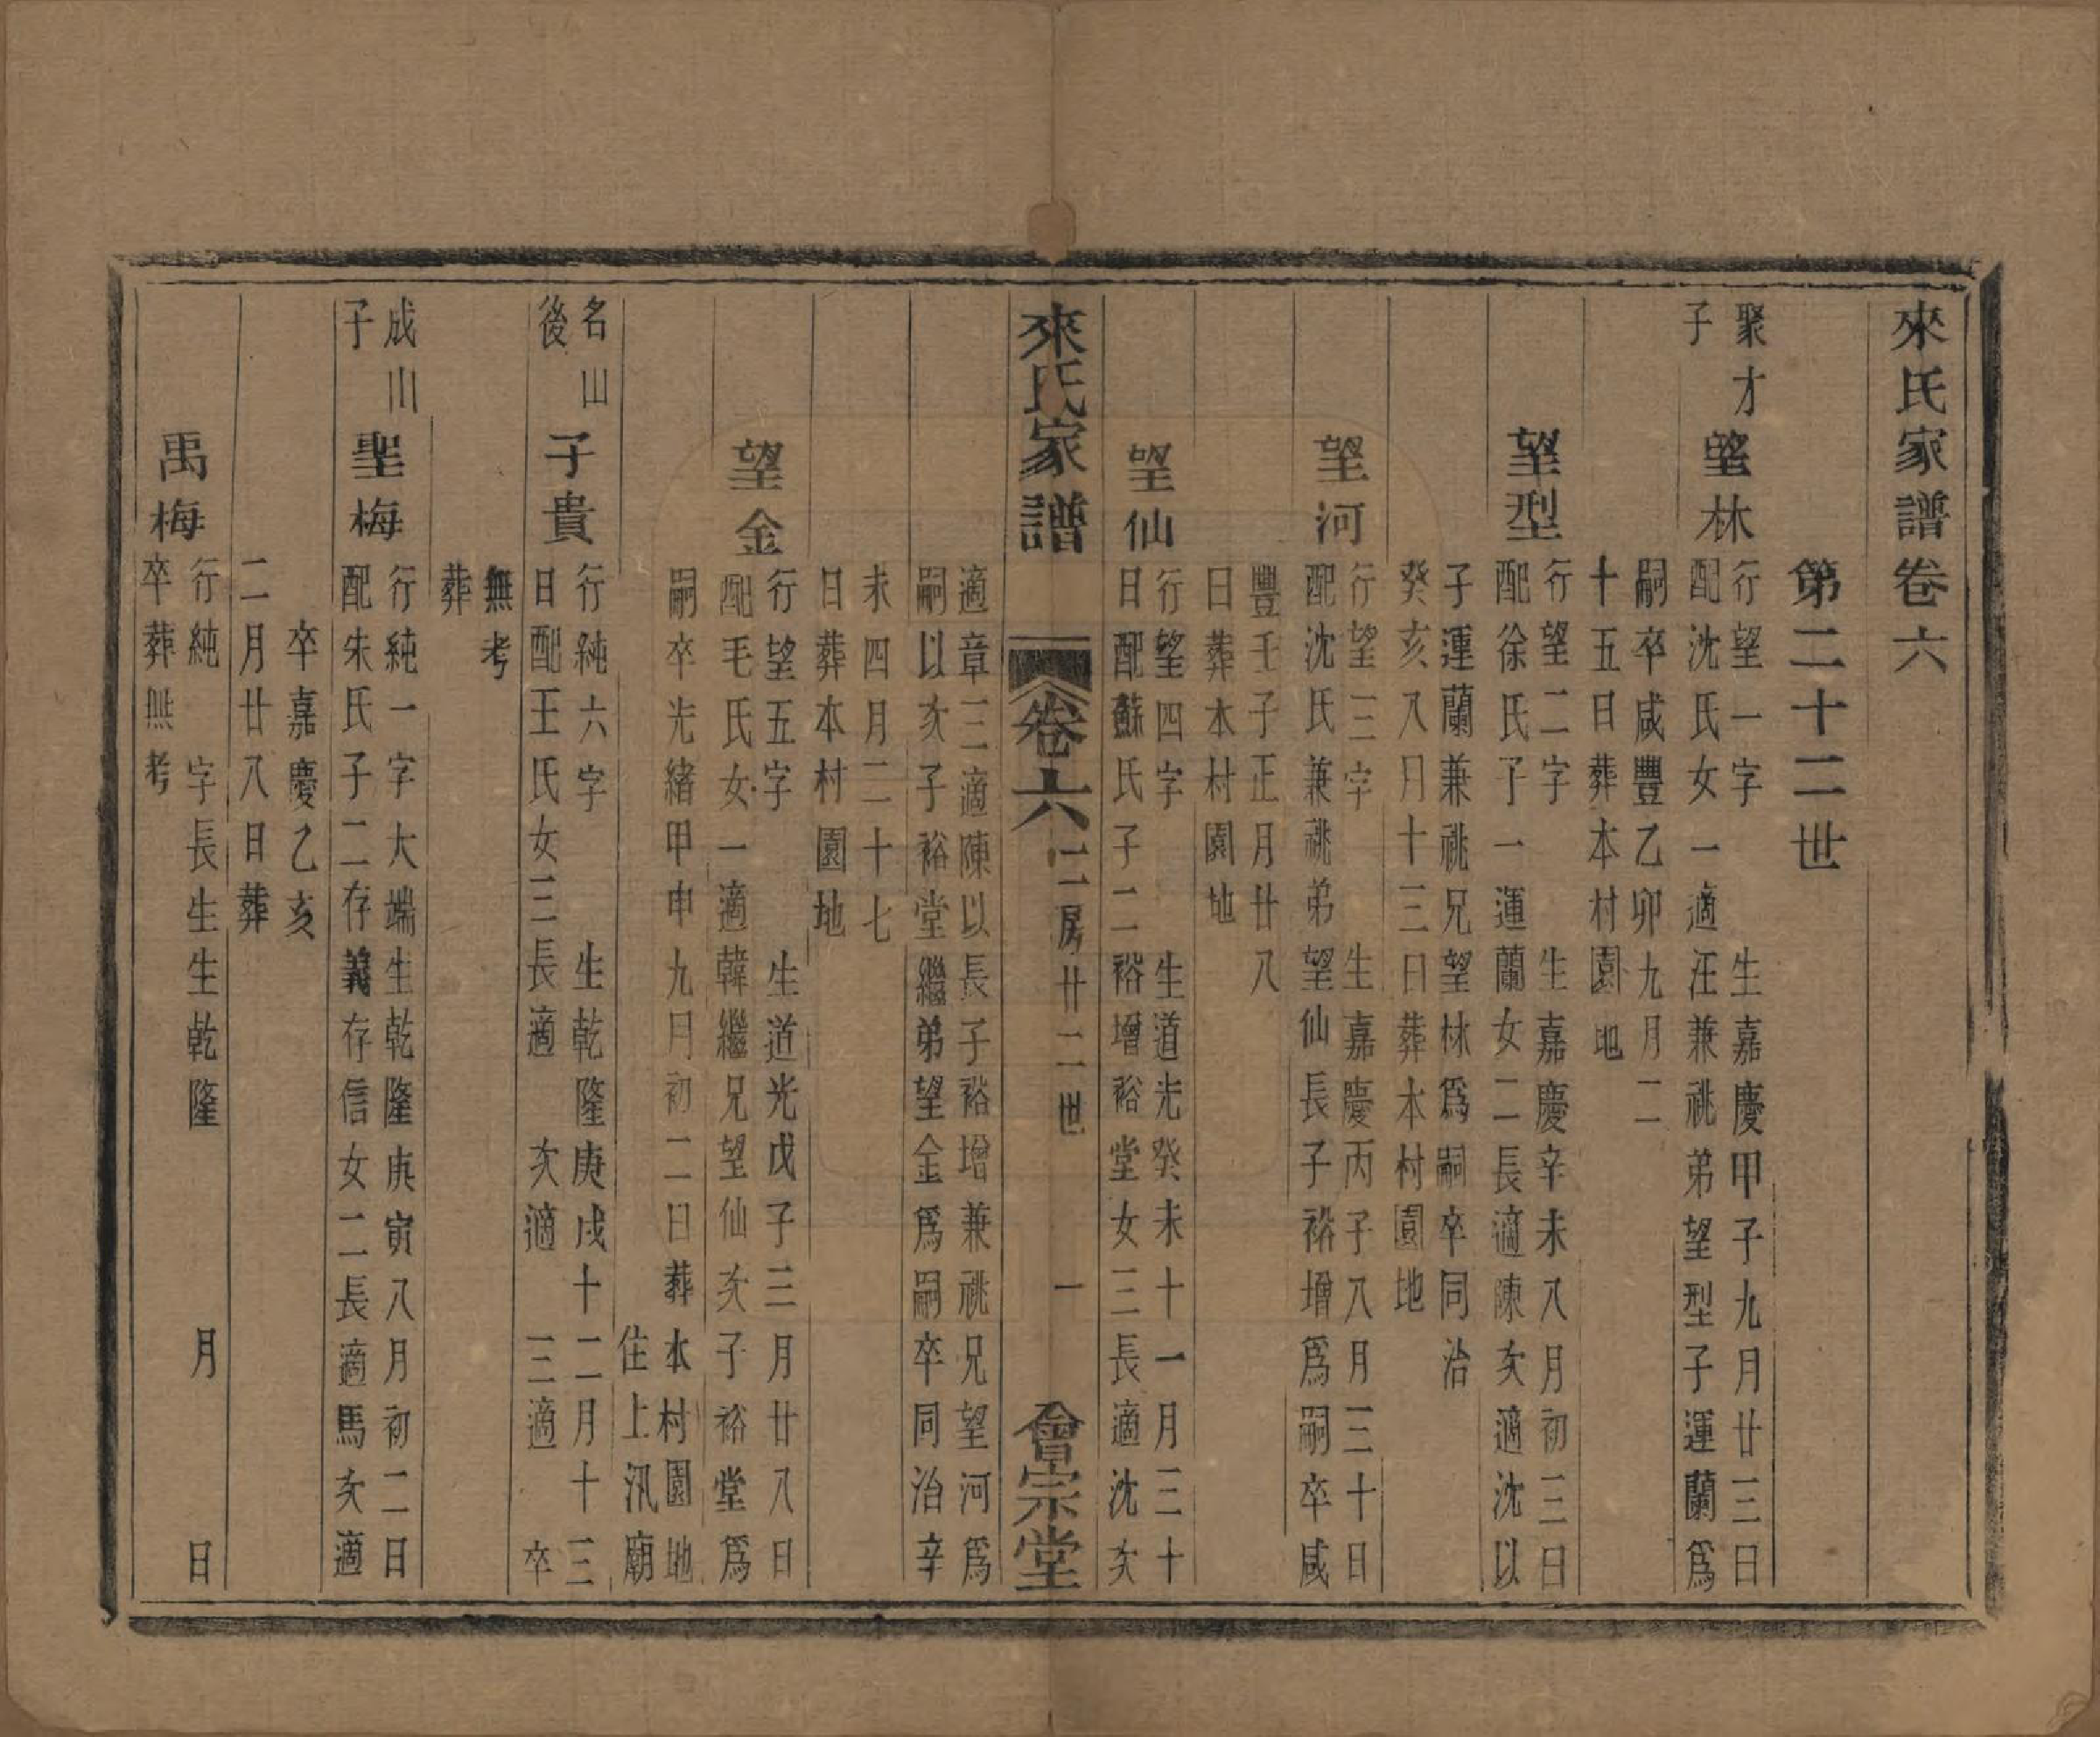 來氏家譜卷六
第二十二世
聚才
子
望林
行望一字　生嘉慶甲子九月廿三日
配沈氏女一適汪兼祧弟望型子運蘭爲
嗣卒咸豐乙卯九月二
十五日葬本村園地
望型
行望二字　生嘉慶辛未八月初三日
配徐氏子一運蘭女二長適陳次適沈以
子運蘭兼祧兄望林爲嗣卒同治
癸亥八月十三日葬本村園地
望河
行望三字　生嘉慶丙子八月三十日
配沈氏兼祧弟望仙長子裕增爲嗣卒咸
豐壬子正月廿八
日葬本村園地
望仙
行望四字　生道光癸未十一月三十
日配蘇氏子二裕增裕堂女三長適沈次
來氏家譜　卷六　二房廿二世　一　會宗堂
適章三適陳以長子裕增兼祧兄望河爲
嗣以次子裕堂繼弟望金爲嗣卒同治辛
未四月二十七
日葬本村園地
望金
行望五字　生道光戊子三月廿八日
配毛氏女一適韓繼兄望仙次子裕堂爲
嗣卒光緒甲申九月初二日葬本村園地
住上汛廟
名山
後
子貴
行純六字　生乾隆庚戌十二月十三
日配王氏女三長適　次適　三適　卒
無考
葬
成山
子
聖梅
行純一字大端生乾隆庚寅八月初二日
配朱氏子二存義存信女二長適馬次適
卒嘉慶乙亥
二月廿八日葬
禹梅
行純　字長生生乾隆　月　日
卒葬無考